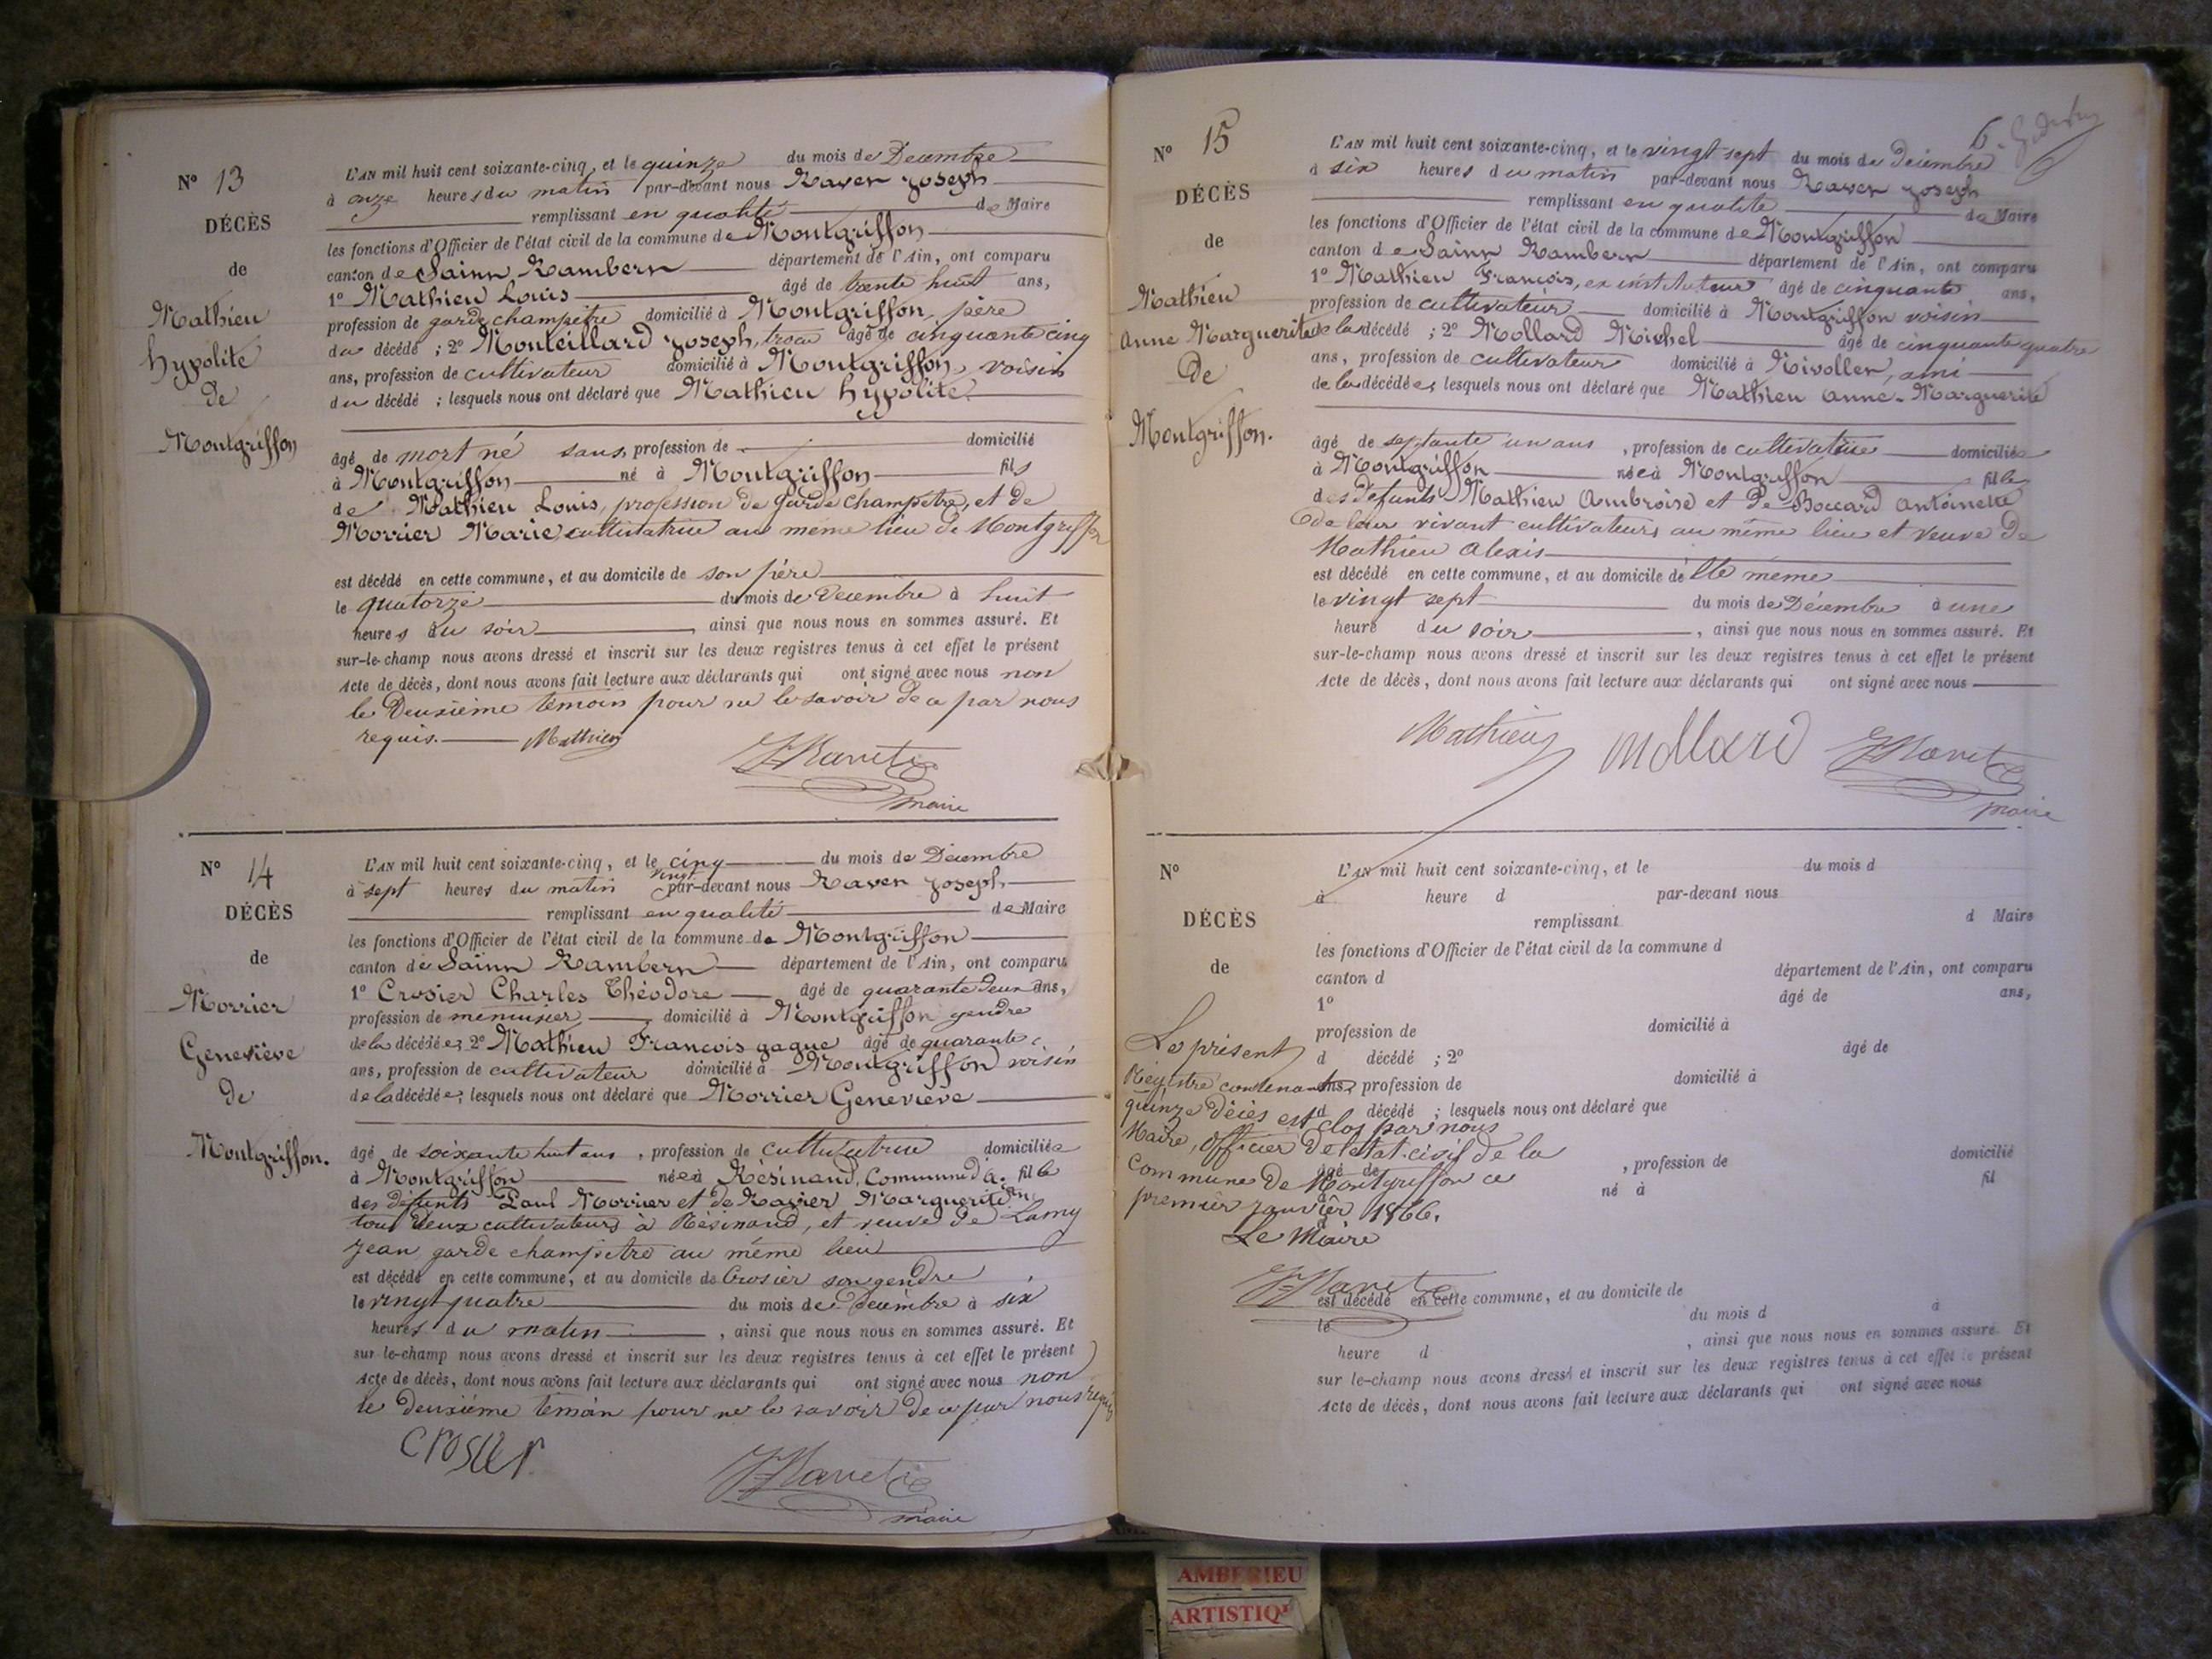 N° 13
DÉCÈS
de
Mathieu
hypolite
de
Montgriffon
L'AN mil huit cent soixante-cinq, et le quinze du mois de Decembre
à onze heures du matin par-devant nous Raver Joseph
remplissant en qualité de Maire
les fonctions d'Officier de l'état civil de la commune de Montgriffon
canton de Sainn Rambern département de l'Ain, ont comparu
1° Mathieu Louis âgé de trente huit ans,
profession de garde champêtre domicilié à Montgriffon, père
du décédé ; 2° Monteillard Joseph, âgé de cinquante cinq
ans, profession de cultivateur domicilié à Montgriffon, voisin
du décédé ; lesquels nous ont déclaré que Mathieu hypolite
âgé de mort né sans, profession de domicilié
à Montgriffon né à Montgriffon fils
de Mathieu Louis, profession de garde champêtre, et de
Morrier Marie cultivatrice au même lieu de Montgriffon
est décédé en cette commune, et au domicile de son père
le quatorze du mois de Decembre à huit
heures du soir, ainsi que nous nous en sommes assuré. Et
sur-le-champ nous avons dressé et inscrit sur les deux registres tenus à cet effet le présent
Acte de décès, dont nous avons fait lecture aux déclarants qui ont signé avec nous non
le Deuxième témoin pour ne le savoir de ce par nous
requis. Mathieu
maire
N° 14
DÉCÈS
de
Morrier
Geneviève
de
Montgriffon.
L'AN mil huit cent soixante-cinq, et le vingt cinq du mois de Décembre
à sept heures du matin par-devant nous Raver Joseph
remplissant en qualité de Maire
les fonctions d'Officier de l'état civil de la commune de Montgriffon
canton de Sainn Rambern département de l'Ain, ont comparu
1° Crosier Charles Théodore âgé de quarante deux ans,
profession de menuisier domicilié à Montgriffon gendre
de la décédée; 2° Mathieu François gague âgé de quarante
ans, profession de cultivateur domicilié à Montgriffon voisin
de la décédée; lesquels nous ont déclaré que Morrier Geneviève
âgé de soixante huit ans, profession de cultivatrice domiciliée
à Montgriffon née à Résinand, Commune d'a. fille
des défunts Paul Morrier et de Ravier Marguerite
tous deux cultivateurs à Résinand, et veuve de Lamy
Jean garde champêtre au même lieu
est décédé en cette commune, et au domicile de Crosier son gendre
le vingt quatre du mois de Decembre à six
heures du matin, ainsi que nous nous en sommes assuré. Et
sur-le-champ nous avons dressé et inscrit sur les deux registres tenus à cet effet le présent
Acte de décès, dont nous avons fait lecture aux déclarants qui ont signé avec nous non
le deuxième témoin pour ne le savoir de ce par nous requis
crosier
maire
6
N° 15
DÉCÈS
de
Mathieu
Anne Marguerite
De
Montgriffon.
L'AN mil huit cent soixante-cinq, et le vingt sept du mois de Décembre
à six heures du matin par-devant nous Raver Joseph
remplissant en qualité de Maire
les fonctions d'Officier de l'état civil de la commune de Montgriffon
canton de Sainn Rambern département de l'Ain, ont comparu
1° Mathieu François, ex instituteur âgé de cinquante ans,
profession de cultivateur domicilié à Montgriffon voisin
de la décédé ; 2° Mollard Michel âgé de cinquante quatre
ans, profession de cultivateur domicilié à Nivollen, ami
de la décédée, lesquels nous ont déclaré que Mathieu Anne-Marguerite
âgé de septante un ans, profession de cultivatrice domiciliée
à Montgriffon née à Montgriffon fille
des défunts Mathieu Ambroise et de Boccard Antoinette
de leur vivant cultivateurs au même lieu et veuve de
Mathieu Alexis
est décédé en cette commune, et au domicile de Elle même
le vingt sept du mois de Décembre à une
heure du soir, ainsi que nous nous en sommes assuré. Et
sur-le-champ nous avons dressé et inscrit sur les deux registres tenus à cet effet le présent
Acte de décès, dont nous avons fait lecture aux déclarants qui ont signé avec nous
Mathieu Mollard
maire
N°
DÉCÈS
de
L'AN mil huit cent soixante-cinq, et le du mois d
à heure d par-devant nous
remplissant d Maire
les fonctions d'Officier de l'état civil de la commune d
canton d département de l'Ain, ont comparu
1° âgé de ans,
profession de domicilié à
d décédé ; 2° âgé de
ans, profession de domicilié à
d décédé ; lesquels nous ont déclaré que
âgé de , profession de domicilié
à né à fil
d
Le présent
Régistre contenant
quinze Décès est clos par nous
Maire, Officier de l'état civil de la
Commune de Montgriffon ce
premier Janvier 1866.
Le Maire
est décédé en cette commune, et au domicile de
le du mois d à
heure d , ainsi que nous nous en sommes assuré. Et
sur-le-champ nous avons dressé et inscrit sur les deux registres tenus à cet effet le présent
Acte de décès, dont nous avons fait lecture aux déclarants qui ont signé avec nous
AMBERIEU
ARTISTIQ